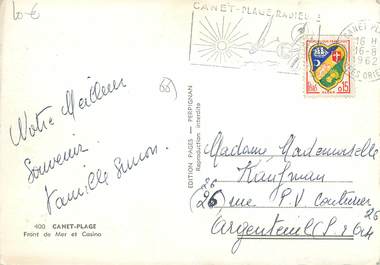 10 €
CANET-PLAGE RADIEUSE
CANET-PL
16 H
16-8
1962
ES ORIE
0,15
66
Notre Meilleur
Souvenir.
Famille Simon.
EDITION PAGES — PERPIGNAN
Reproduction interdite
Madame Mademoiselle
Kaufman
26 rue P. V. Couturier
26
Argenteuil (S. et O.)
400 CANET-PLAGE
Front de Mer et Casino